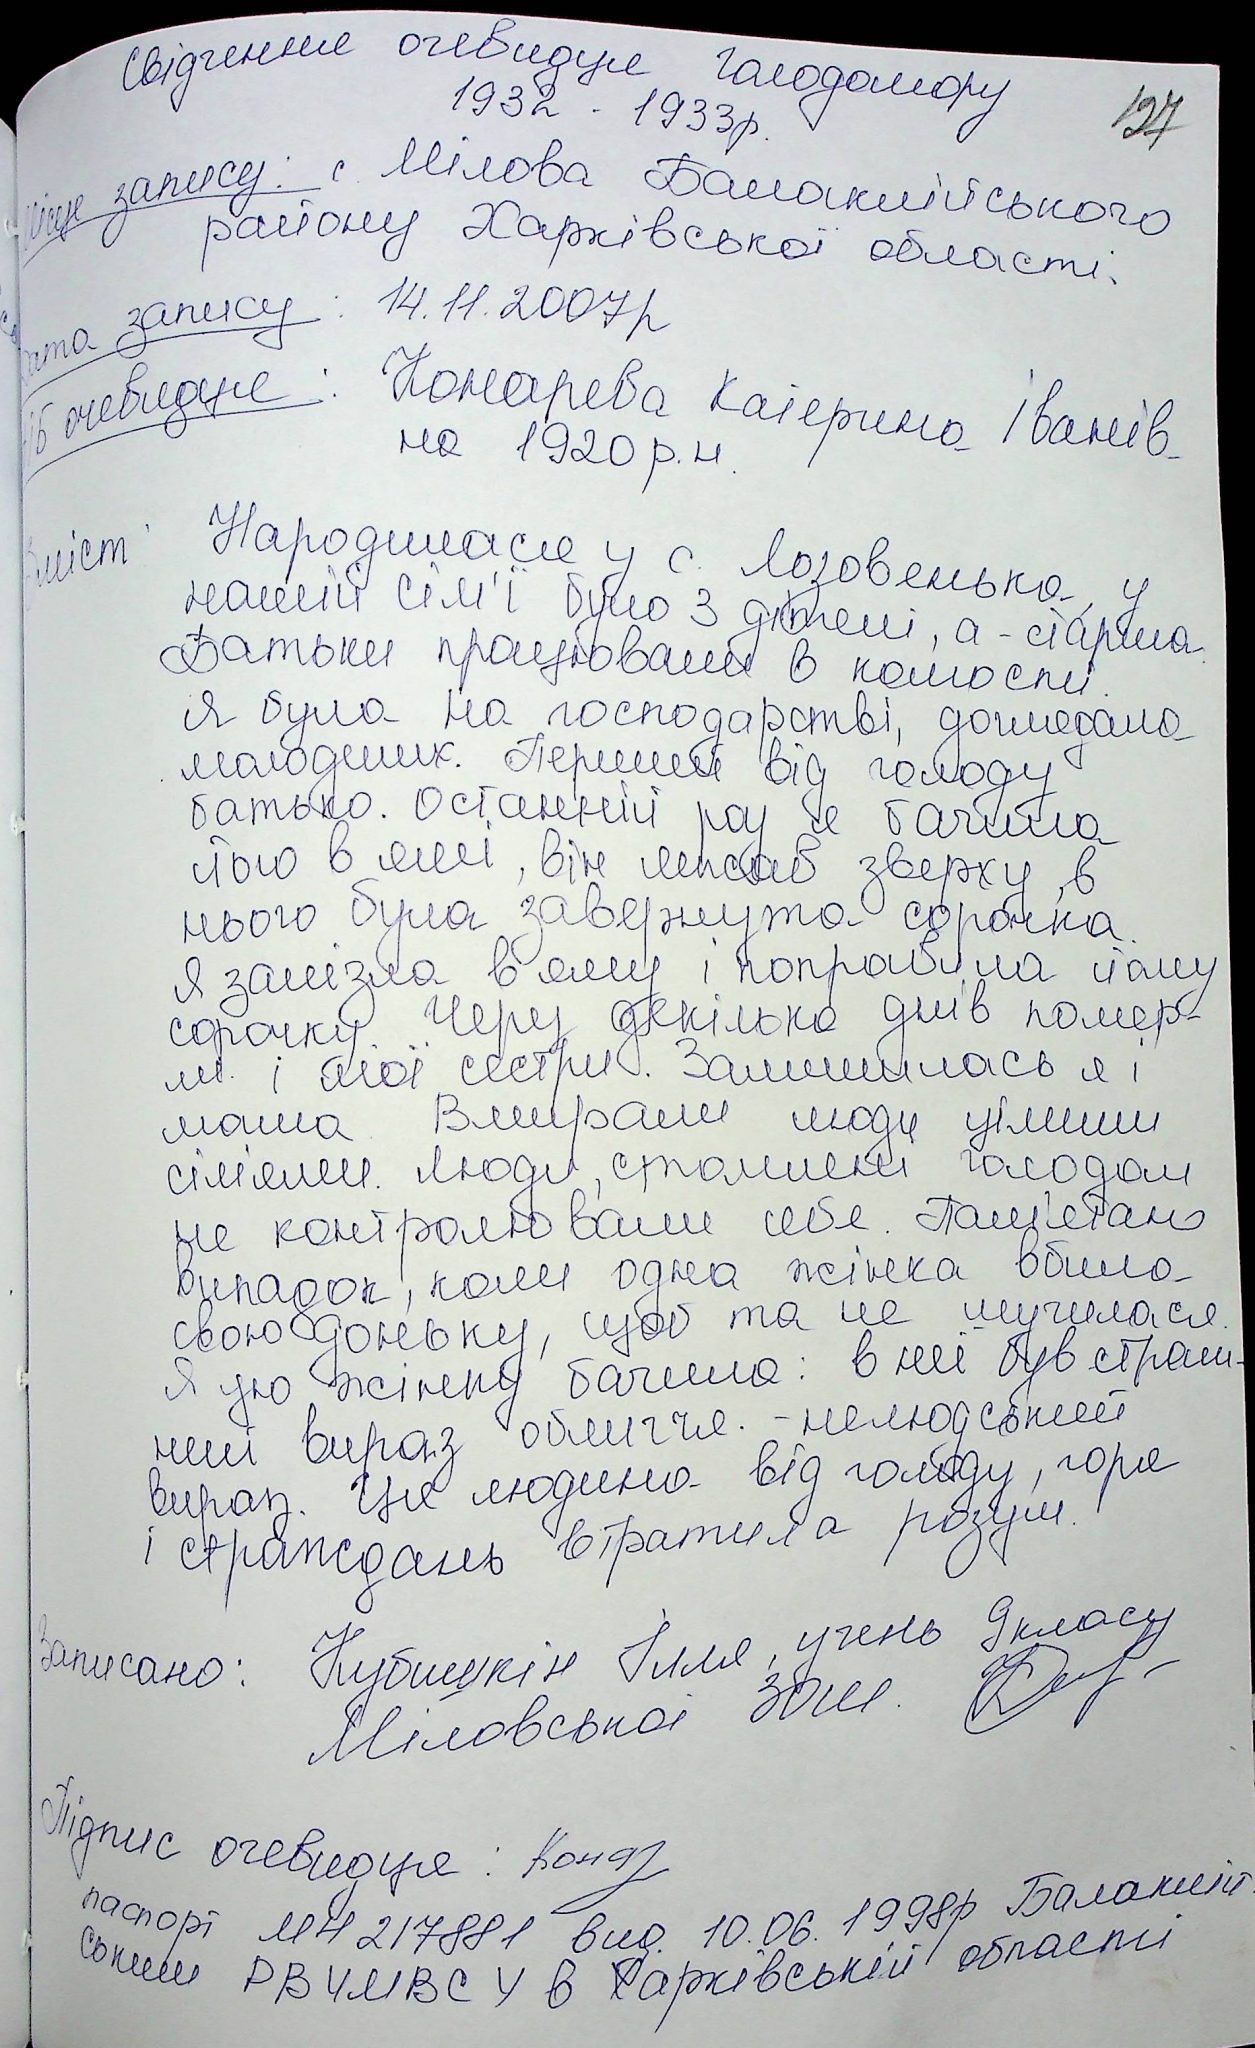 Свідчення очевидця Голодомору
1932 - 1933р.
127
Місце запису: с. Мілова Балаклійського
району Харківської області.
Дата запису: 14.11.2007р
ПІБ очевидця: Конарева Катерина Іванів-
на 1920 р.н.
Зміст: Народилася у с. Лозовенька, у
нашій сім'ї було 3 дітей, а - старша.
Батьки працювали в колгоспі.
Я була на господарстві, доглядала
молодших. Перший від голоду
батько. Останній раз я бачила
його в ямі, він лежав зверху, в
нього була завернута сорочка.
Я залізла в яму і поправила йому
сорочку. Через декілька днів помер-
ли і мої сестри. Залишилась я і
мама. Вмирали люди цілими
сім'ями. Люди, стомлені голодом
не контролювали себе. Пам'ятаю
випадок, коли одна жінка вбила
свою доньку, щоб та не мучилася.
Я цю жінку бачила: в неї був страш-
ний вираз обличчя. - нелюдський
вираз. Ця людина від голоду, горя
і страждань втратила розум.
Записано: Кубишкін Ілля, учень 9 класу
Міловської ЗОШ.
Підпис очевидця:
паспорт МН 217881 вид. 10.06.1998р Балаклій-
ським РВ УМВС У в Харківській області